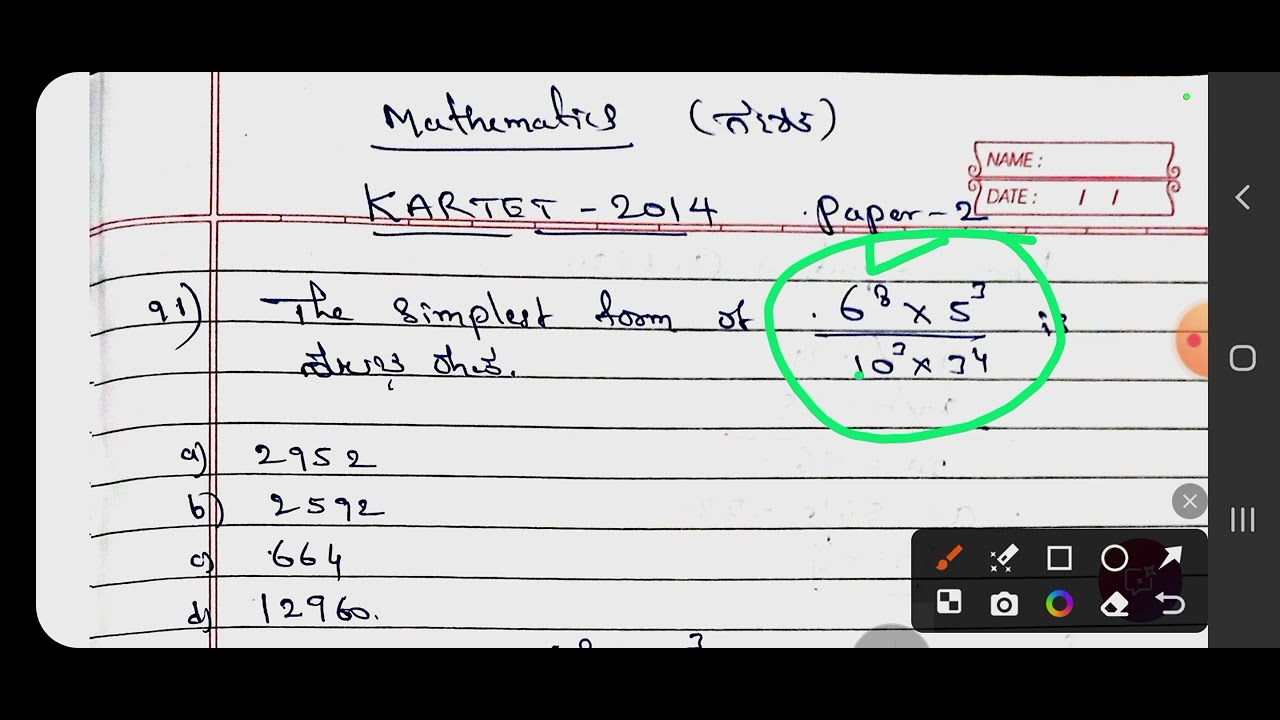 Mathematics (ಗಣಿತ)
NAME :
DATE : / /
KARTET - 2014 Paper - 2
91) The simplest form of 6⁸ × 5³ / 10³ × 3⁴ is
a) 2952
b) 2592
c) 664
d) 12960.